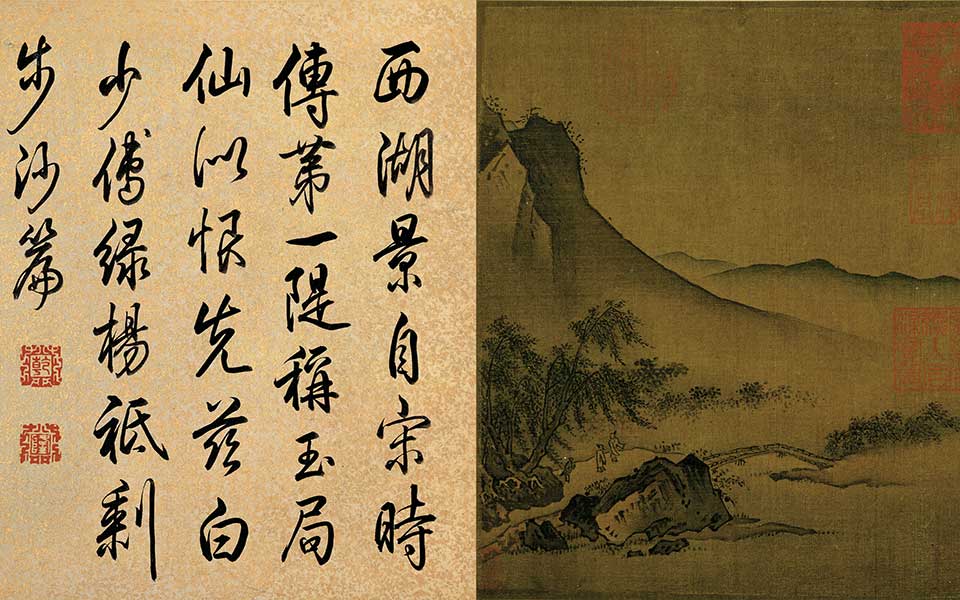 西湖景自宋時
傳第一隄稱玉局
仙似恨先茲白
少傅綠楊祇剩
步沙篇